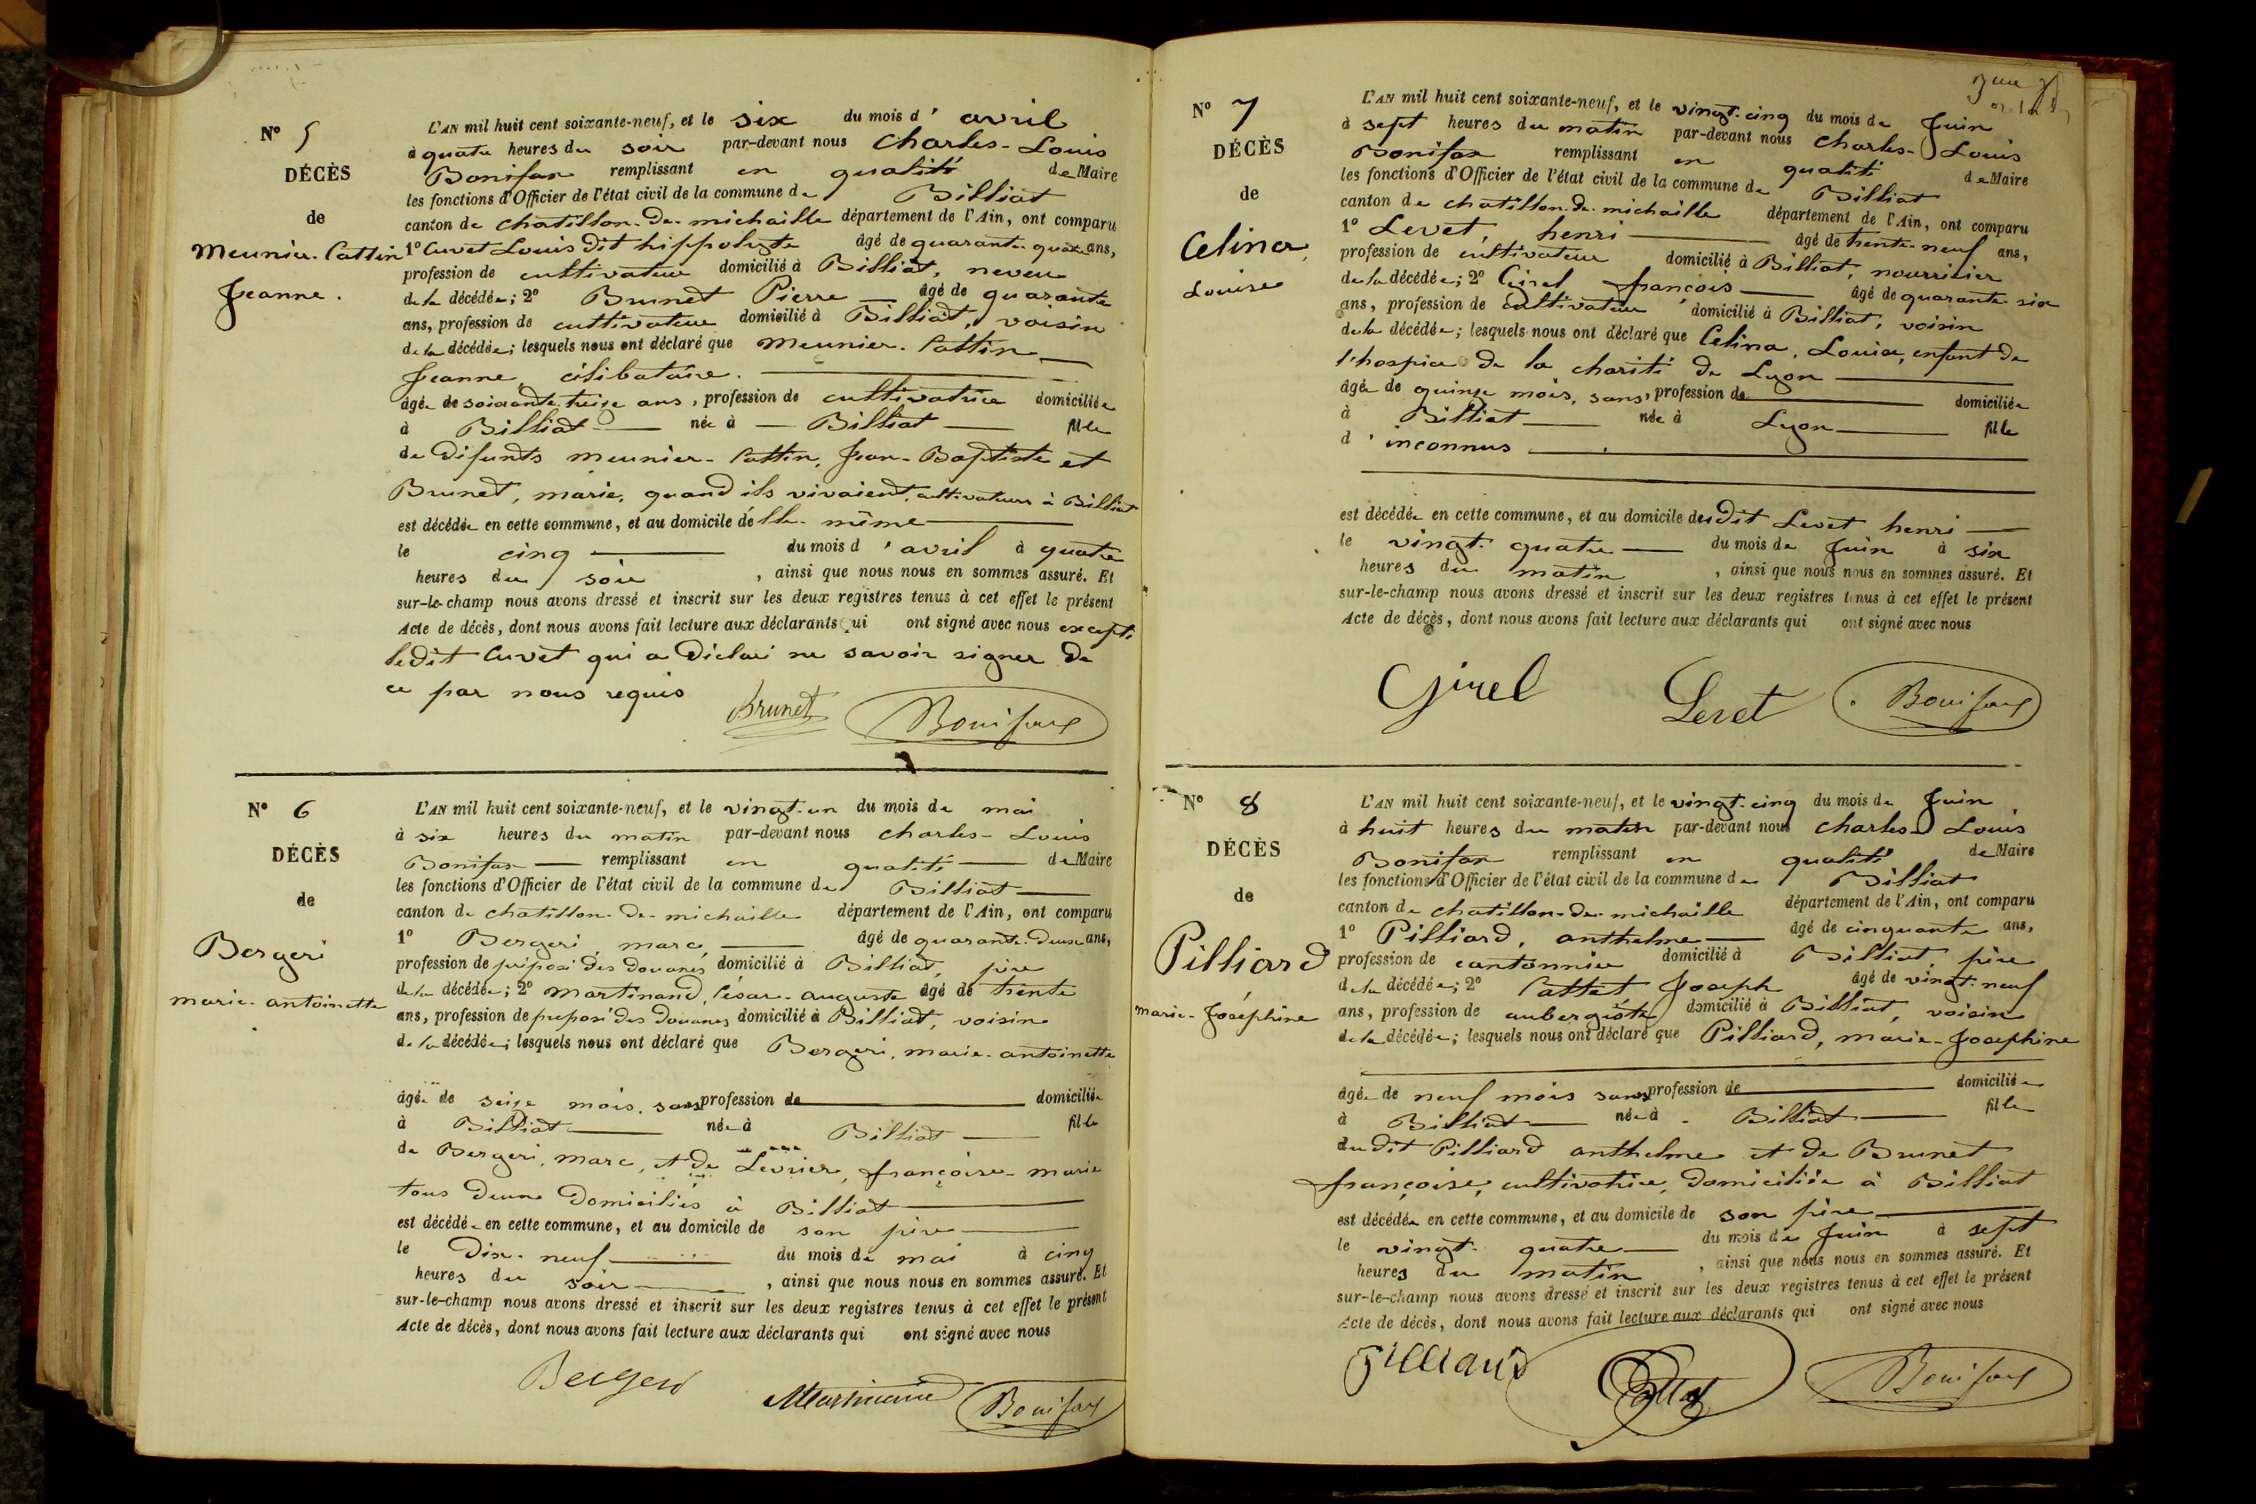 N° 5
DÉCÈS
de
Meunier-Cattin
Jeanne.
L'AN mil huit cent soixante-neuf, et le six du mois d'avril
à quatre heures du soir par-devant nous Charles-Louis
Bonifax remplissant en qualité de Maire
les fonctions d'Officier de l'état civil de la commune de Billiat
canton de Chatillon-de-michaille département de l'Ain, ont comparu
1° Cuvet Louis dit hippolyte âgé de quarante-quatre ans,
profession de cultivateur domicilié à Billiat, neveu
de la décédée; 2° Brunet Pierre — âgé de quarante
ans, profession de cultivateur domicilié à Billiat, voisin
de la décédée; lesquels nous ont déclaré que Meunier-Cattin —
Jeanne, célibataire. —
âgée de soixante-treize ans, profession de cultivatrice domiciliée
à Billiat — née à — Billiat — fille
de défunts meunier-Cattin, Jean-Baptiste et
Brunet, marie, quand ils vivaient, cultivateurs à Billiat
est décédée en cette commune, et au domicile d'elle-même —
le cinq — du mois d'avril à quatre
heures du soir, ainsi que nous nous en sommes assuré. Et
sur-le-champ nous avons dressé et inscrit sur les deux registres tenus à cet effet le présent
Acte de décès, dont nous avons fait lecture aux déclarants qui ont signé avec nous excepté
ledit Cuvet qui a déclaré ne savoir signer de
ce par nous requis
Brunet Bonifax
N° 6
DÉCÈS
de
Bergeri
marie-antoinette
L'AN mil huit cent soixante-neuf, et le vingt-un du mois de mai
à six heures du matin par-devant nous Charles-Louis
Bonifax — remplissant en qualité — de Maire
les fonctions d'Officier de l'état civil de la commune de Billiat —
canton de Chatillon-de-michaille département de l'Ain, ont comparu
1° Bergeri, marc, — âgé de quarante-deux ans,
profession de préposé des douanes domicilié à Billiat, père
de la décédée; 2° Martinand, César-auguste âgé de trente
ans, profession de préposé des douanes domicilié à Billiat, voisin
de la décédée; lesquels nous ont déclaré que Bergeri, marie-antoinette
âgée de seize mois, sans profession de — domiciliée
à Billiat — née à Billiat — fille
de Bergeri, marc, et de Levrier, françoise-marie
tous deux domiciliés à Billiat —
est décédée en cette commune, et au domicile de son père —
le dix-neuf — du mois de mai à cinq
heures du soir —, ainsi que nous nous en sommes assuré. Et
sur-le-champ nous avons dressé et inscrit sur les deux registres tenus à cet effet le présent
Acte de décès, dont nous avons fait lecture aux déclarants qui ont signé avec nous
Bergeri Martinand Bonifax
N° 7
DÉCÈS
de
Celina,
Louise
L'AN mil huit cent soixante-neuf, et le vingt-cinq du mois de Juin
à sept heures du matin par-devant nous Charles-Louis
Bonifax remplissant en qualité de Maire
les fonctions d'Officier de l'état civil de la commune de Billiat
canton de Chatillon-de-michaille département de l'Ain, ont comparu
1° Levet, henri — âgé de trente-neuf ans,
profession de cultivateur domicilié à Billiat, nourricier
de la décédée; 2° Girel françois — âgé de quarante-six
ans, profession de cultivateur domicilié à Billiat, voisin
de la décédée; lesquels nous ont déclaré que Celina, Louise, enfant de
l'hospice de la charité de Lyon —
âgée de quinze mois, sans profession de — domiciliée
à Billiat — née à Lyon — fille
d'inconnus —
est décédée en cette commune, et au domicile dudit Levet henri —
le vingt-quatre — du mois de Juin à six
heures du matin, ainsi que nous nous en sommes assuré. Et
sur-le-champ nous avons dressé et inscrit sur les deux registres tenus à cet effet le présent
Acte de décès, dont nous avons fait lecture aux déclarants qui ont signé avec nous
Girel Levet Bonifax
N° 8
DÉCÈS
de
Pilliard
marie-Joséphine
L'AN mil huit cent soixante-neuf, et le vingt-cinq du mois de Juin
à huit heures du matin par-devant nous Charles-Louis
Bonifax remplissant en qualité de Maire
les fonctions d'Officier de l'état civil de la commune de Billiat
canton de Chatillon-de-michaille département de l'Ain, ont comparu
1° Pilliard, anthelme — âgé de cinquante ans,
profession de cantonnier domicilié à Billiat, père
de la décédée; 2° Cattet Joseph âgé de vingt-neuf
ans, profession de aubergiste domicilié à Billiat, voisin
de la décédée; lesquels nous ont déclaré que Pilliard, marie-Josephine
âgée de neuf mois sans profession de — domiciliée
à Billiat — née à Billiat — fille
dudit Pilliard anthelme et de Brunet
françoise, cultivatrice, domiciliée à Billiat
est décédée en cette commune, et au domicile de son père —
le vingt-quatre — du mois de Juin à sept
heures du matin, ainsi que nous nous en sommes assuré. Et
sur-le-champ nous avons dressé et inscrit sur les deux registres tenus à cet effet le présent
Acte de décès, dont nous avons fait lecture aux déclarants qui ont signé avec nous
Pilliard Cattet Bonifax